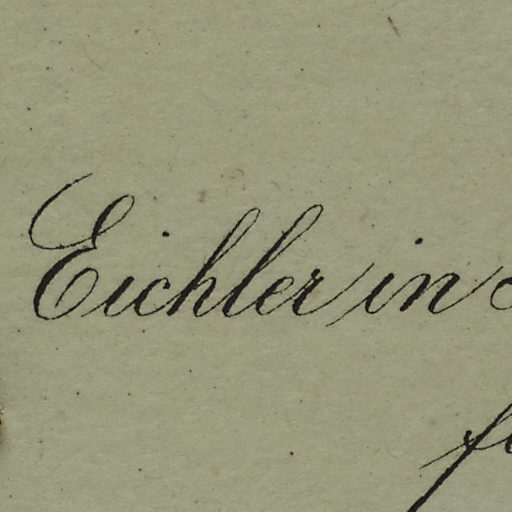 Eichler in